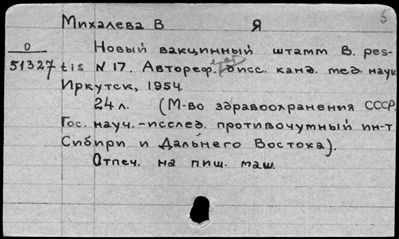 5
Михалева В Я
О Новый вакцинный штамм B. pes-
51327 tis N 17. Автореф. дисс. канд. мед. наук
Иркутск, 1954.
24 л. (М-во здравоохранения СССР.
Гос. науч.-исслед. противочумный ин-т
Сибири и Дальнего Востока).
Отпеч. на пиш. маш.